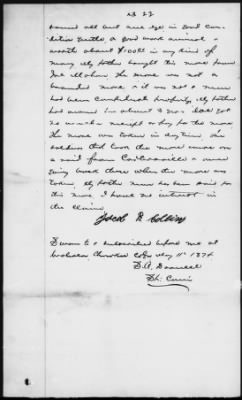 sound all but one eye in good con-
dition gentle & good work animal &
worth about $100.00 in any kind of
money My father bought this mare from
The mare was not a
branded mare & it was not & never
had been Confederate property. My father
had owned her about 3 years. Did not
no receipt or pay for the mare.
The mare was taken in day time the
soldiers that took the mare were on
a raid from Cartersville & were
going back there when the mare was
taken. My father never has been paid for
this mare. I have no interest in
the claim
Jacob R Collins
Sworn to & subscribed before me at
Cherokee Co Ga May 11th 1874